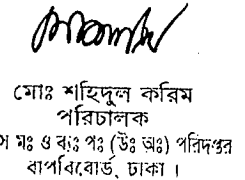 মোঃ শহিদুল করিম
পরিচালক
স মঃ ও ব্যঃ পঃ (উঃ অঃ) পরিদপ্তর
বাপবিবোর্ড, ঢাকা ।